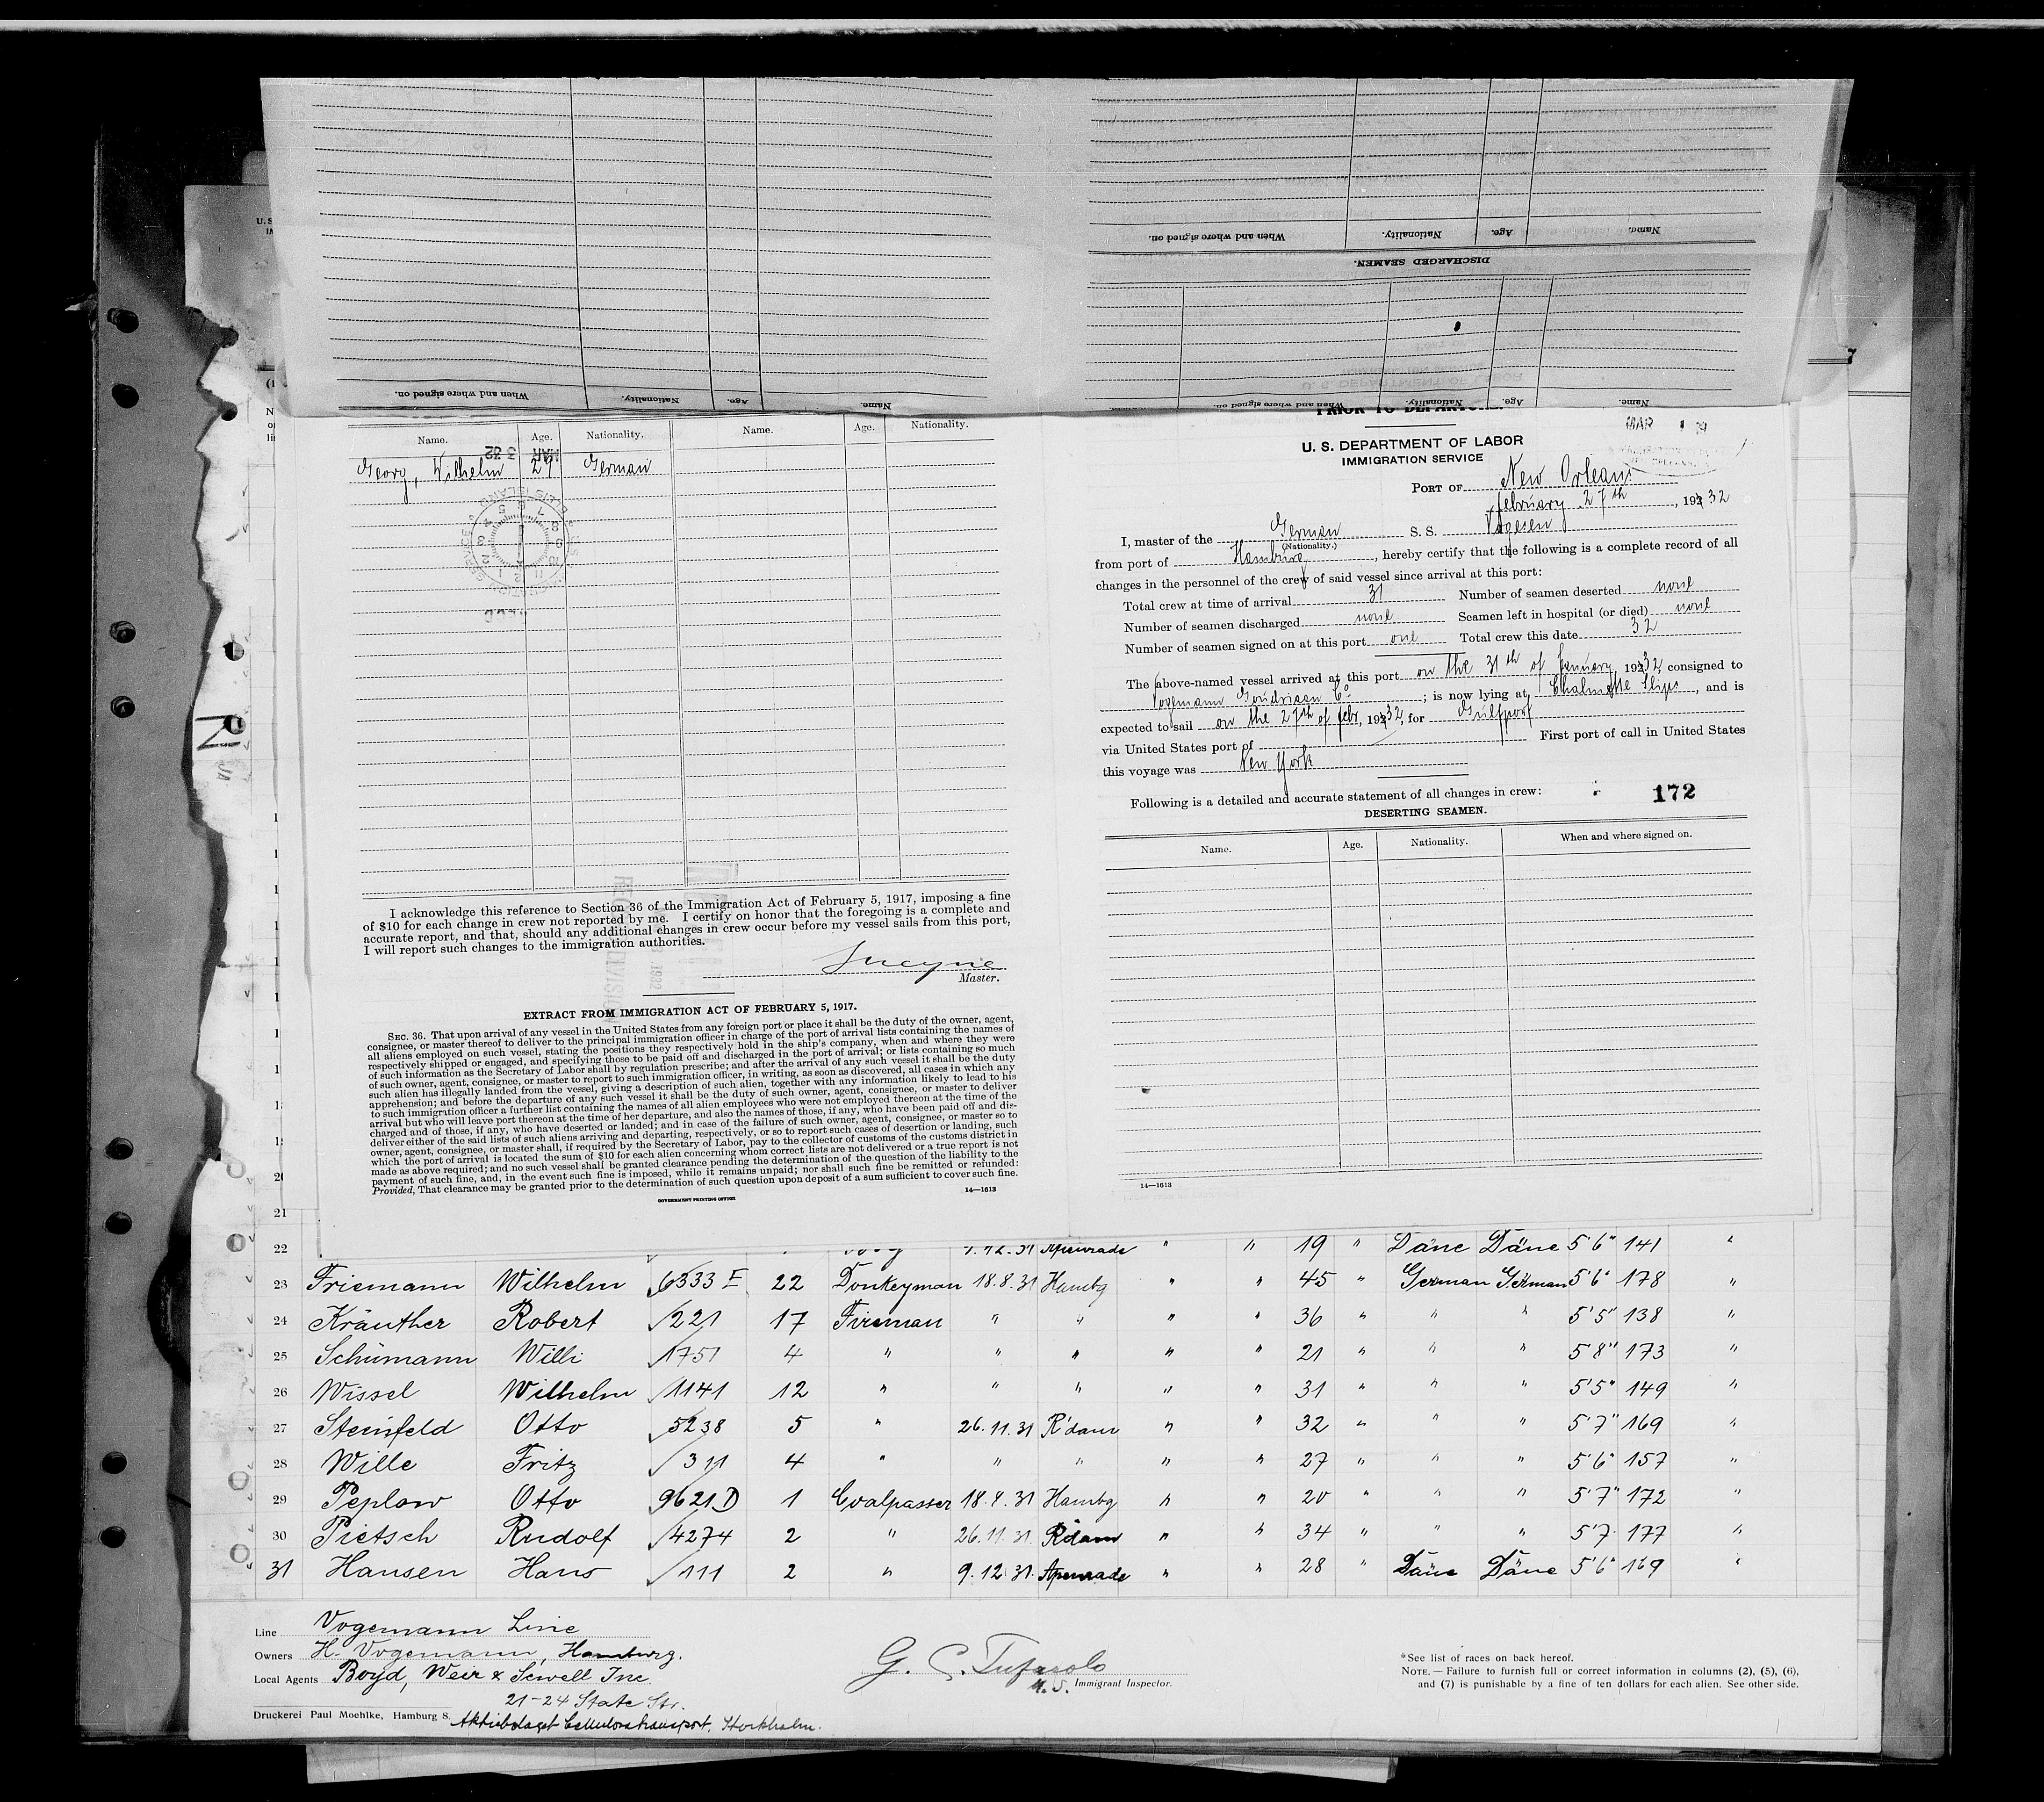 When and where signed on.
Nationality.
Age.
Name.
DISCHARGED SEAMEN.
When and where signed on. Nationality. Age. Name.
When and where signed on. Nationality. Age. Name.
PRIOR TO
Name. Age. Nationality. Name. Age. Nationality.
MAR 3 32
Georg, Wilhelm 29 German
I acknowledge this reference to Section 36 of the Immigration Act of February 5, 1917, imposing a fine
of $10 for each change in crew not reported by me. I certify on honor that the foregoing is a complete and
accurate report, and that, should any additional changes in crew occur before my vessel sails from this port,
I will report such changes to the immigration authorities.
Master.
EXTRACT FROM IMMIGRATION ACT OF FEBRUARY 5, 1917.
SEC. 36. That upon arrival of any vessel in the United States from any foreign port or place it shall be the duty of the owner, agent,
consignee, or master thereof to deliver to the principal immigration officer in charge of the port of arrival lists containing the names of
all aliens employed on such vessel, stating the positions they respectively hold in the ship's company, when and where they were
respectively shipped or engaged, and specifying those to be paid off and discharged in the port of arrival; or lists containing so much
of such information as the Secretary of Labor shall by regulation prescribe; and after the arrival of any such vessel it shall be the duty
of such owner, agent, consignee, or master to report to such immigration officer, in writing, as soon as discovered, all cases in which any
such alien has illegally landed from the vessel, giving a description of such alien, together with any information likely to lead to his
apprehension; and before the departure of any such vessel it shall be the duty of such owner, agent, consignee, or master to deliver
to such immigration officer a further list containing the names of all alien employees who were not employed thereon at the time of the
arrival but who will leave port thereon at the time of her departure, and also the names of those, if any, who have been paid off and dis-
charged and of those, if any, who have deserted or landed; and in case of the failure of such owner, agent, consignee, or master so to
deliver either of the said lists of such aliens arriving and departing, respectively, or so to report such cases of desertion or landing, such
owner, agent, consignee, or master shall, if required by the Secretary of Labor, pay to the collector of customs of the customs district in
which the port of arrival is located the sum of $10 for each alien concerning whom correct lists are not delivered or a true report is not
made as above required; and no such vessel shall be granted clearance pending the determination of the question of the liability to the
payment of such fine, and, in the event such fine is imposed, while it remains unpaid; nor shall such fine be remitted or refunded:
Provided, That clearance may be granted prior to the determination of such question upon deposit of a sum sufficient to cover such fine.
GOVERNMENT PRINTING OFFICE 14—1613
U. S. DEPARTMENT OF LABOR
IMMIGRATION SERVICE
PORT OF New Orleans
february 27th, 1932
I, master of the German S. S. Vogesen
(Nationality.)
from port of Hamburg, hereby certify that the following is a complete record of all
changes in the personnel of the crew of said vessel since arrival at this port:
Total crew at time of arrival 31 Number of seamen deserted none
Number of seamen discharged none Seamen left in hospital (or died) none
Number of seamen signed on at this port one Total crew this date 32
The above-named vessel arrived at this port on the 31th of January, 1932, consigned to
Vogemann Goudriaan Co; is now lying at Chalmette Slips, and is
expected to sail on the 27th of febr, 1932, for Gulfport
via United States port of First port of call in United States
this voyage was New York
Following is a detailed and accurate statement of all changes in crew: 172
DESERTING SEAMEN.
Name. Age. Nationality. When and where signed on.
14—1613
21
22 Apenrade " " 19 " Däne Däne 5'6" 141 "
23 Friemann Wilhelm 6333 E 22 Donkeyman 18.8.31 Hambg " " 45 " German German 5'6" 178 "
24 Kräuther Robert 221 17 Fireman " " " " 36 " " " 5'5" 138 "
25 Schümann Willi 1751 4 " " " " " 21 " " " 5'8" 173 "
26 Wissel Wilhelm 1141 12 " " " " " 31 " " " 5'5" 149 "
27 Steinfeld Otto 5238 5 " 26.11.31 R'dam " " 32 " " " 5'7" 169 "
28 Wille Fritz 311 4 " " " " " 27 " " " 5'6" 157 "
29 Peplow Otto 9621 D 1 Coalpasser 18.8.31 Hambg " " 20 " " " 5'7" 172 "
30 Pietsch Rudolf 4274 2 " 26.11.31 R'dam " " 34 " " " 5'7" 177 "
31 Hansen Hans 111 2 " 9.12.31 Apenrade " " 28 " Däne Däne 5'6" 169 "
Line Vogemann Line
Owners H. Vogemann, Hamburg.
Local Agents Boyd, Weir & Sewell Inc
21-24 State Str.
Druckerei Paul Moehlke, Hamburg 8. Aktiebolaget Cellulosatransport, Stockholm.
G. C. Tufarolo
U. S. Immigrant Inspector.
*See list of races on back hereof.
NOTE.—Failure to furnish full or correct information in columns (2), (5), (6),
and (7) is punishable by a fine of ten dollars for each alien. See other side.